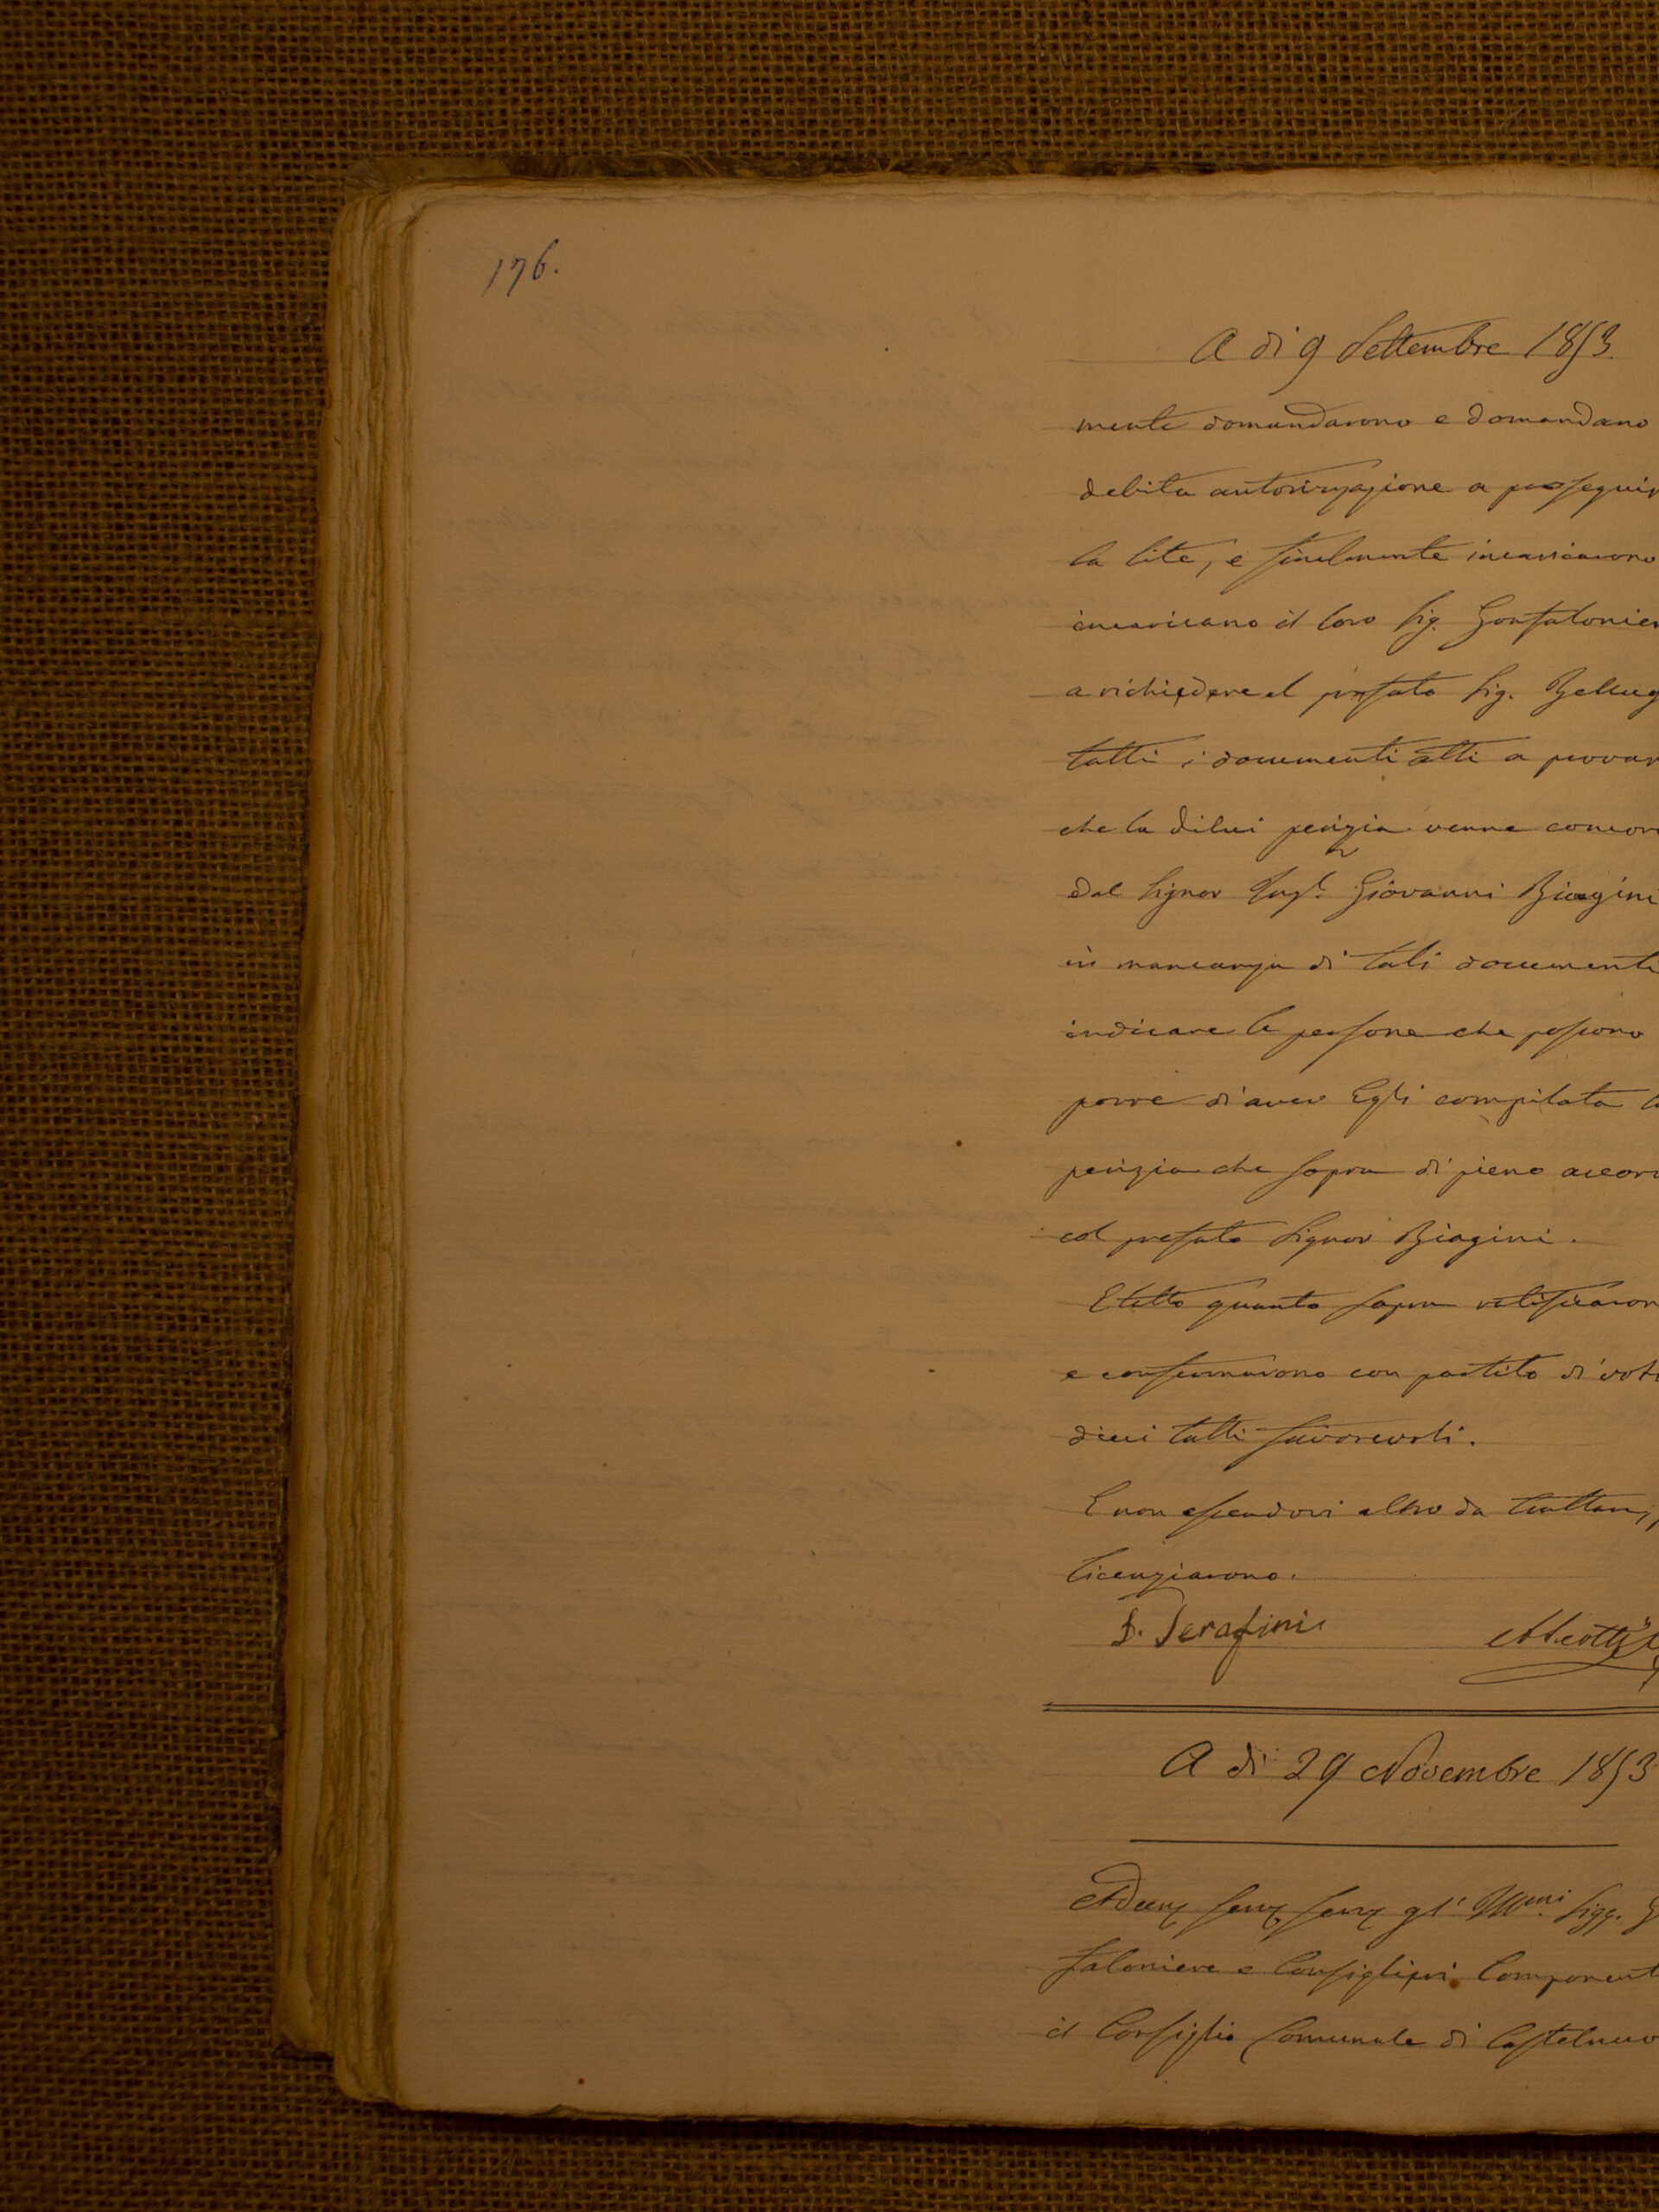 176.
A di 9 Settembre 1853.
mente domandarono e domandano
debita autorizzazione a proseguir
la lite, e finalmente incaricarono
incaricano il loro Sig. Gonfalonier
a richiedere al prefato Sig. Bellug
tutti i documenti atti a provar
che la di lui perizia venne concor
dal Signor Ingr. Giovanni Biagini
in mancanza di tali documenti
indicare le persone che possono
porre di aver Egli compilata l
perizia che sopra di pieno accor
col prefato Signor Biagini.
E tutto quanto sopra ratificaron
e confermarono con partito di voti
dieci tutti favorevoli.
E non essendovi altro da trattare,
licenziarono.
D. Serafini
A di 29 Novembre 1853
Adunj servj servj gl' Illmi. Sigg. G
faloniere e Consiglieri Component
il Consiglio Comunale di Castelnuov